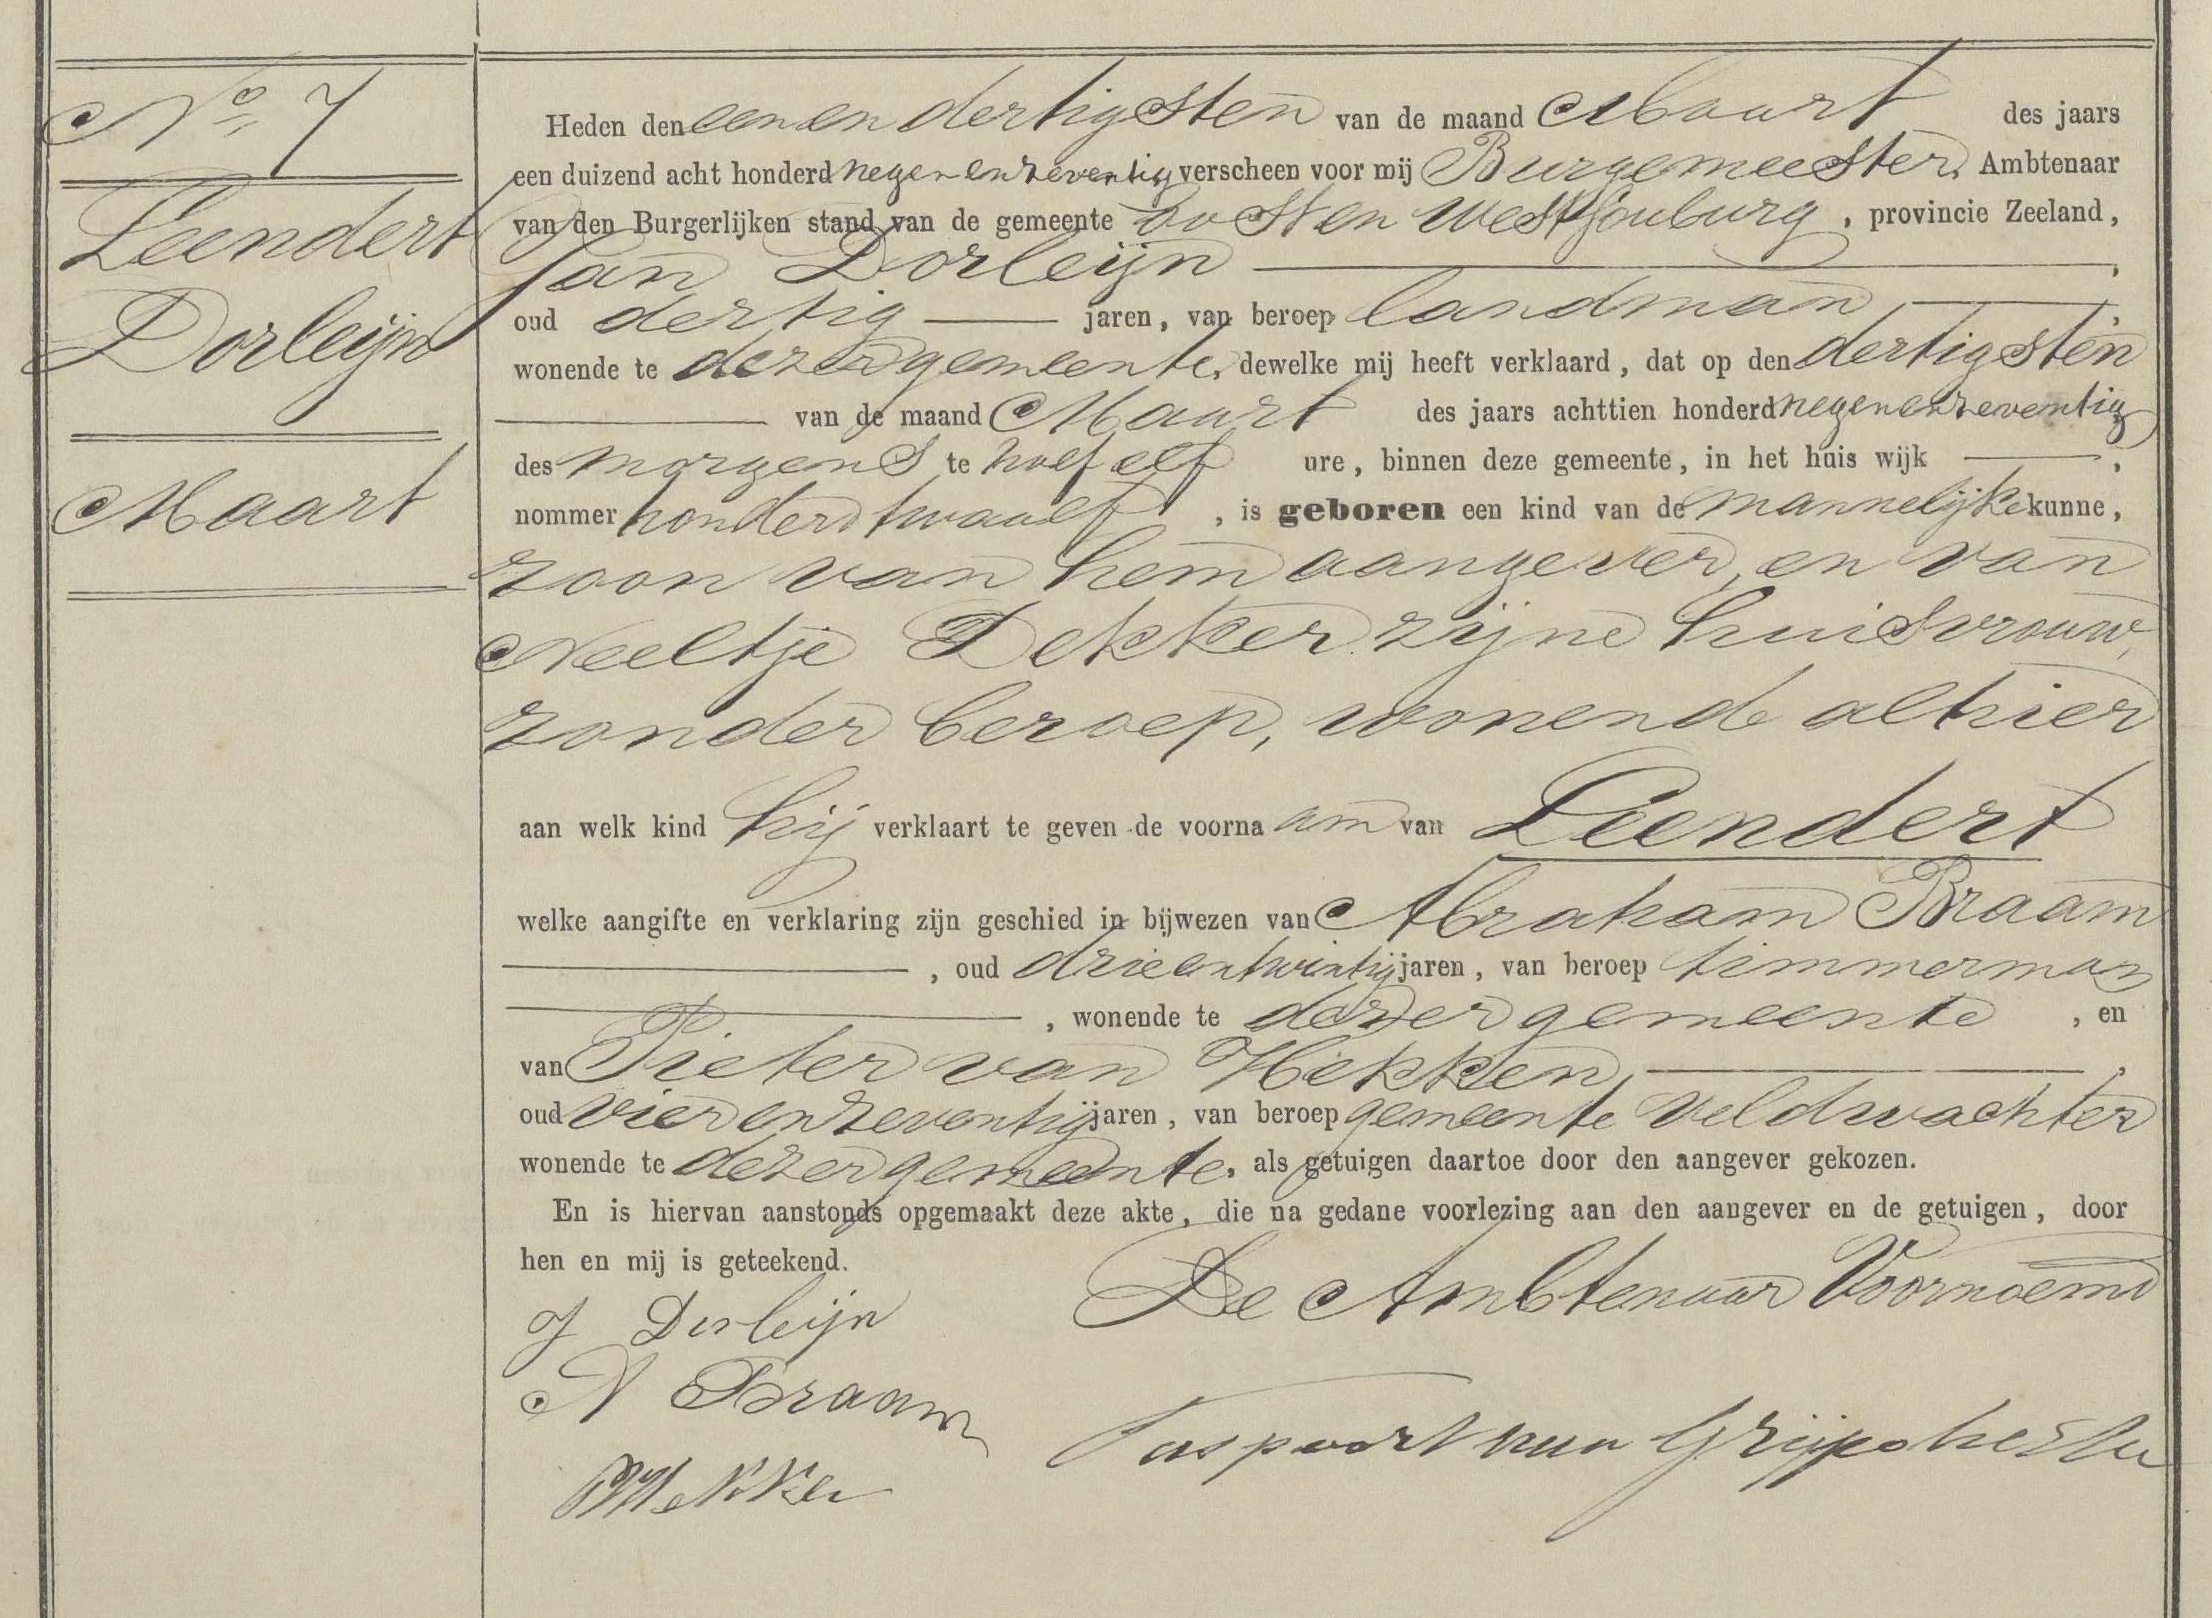 No 7
Leendert
Dorleijn
Maart
Heden den een en dertigsten van de maand Maart des jaars
een duizend acht honderd negen en zeventig verscheen voor mij Burgemeester, Ambtenaar
van den Burgerlijken stand van de gemeente Oost en West Souburg, provincie Zeeland,
Jan Dorleijn
oud dertig jaren, van beroep landman,
wonende te dezer gemeente, dewelke mij heeft verklaard, dat op den dertigsten
van de maand Maart des jaars achttien honderd negen en zeventig
des morgens te half elf ure, binnen deze gemeente, in het huis wijk ,
nommer honderd twaalf, is geboren een kind van de mannelijke kunne,
zoon van hem aangever, en van
Neeltje Dekker zijne huisvrouw,
zonder beroep, wonende alhier
aan welk kind hij verklaart te geven de voornaam van Leendert
welke aangifte en verklaring zijn geschied in bijwezen van Abraham Braam
, oud drieentwintig jaren, van beroep timmerman
, wonende te dezer gemeente, en
van Pieter van Hekken,
oud vier en zeventig jaren, van beroep gemeente veldwachter
wonende te dezer gemeente, als getuigen daartoe door den aangever gekozen.
En is hiervan aanstonds opgemaakt deze akte, die na gedane voorlezing aan den aangever en de getuigen, door
hen en mij is geteekend.
De Ambtenaar Voornoemd
J Dorleijn
A Braam
Paspoort van Grijpskerke